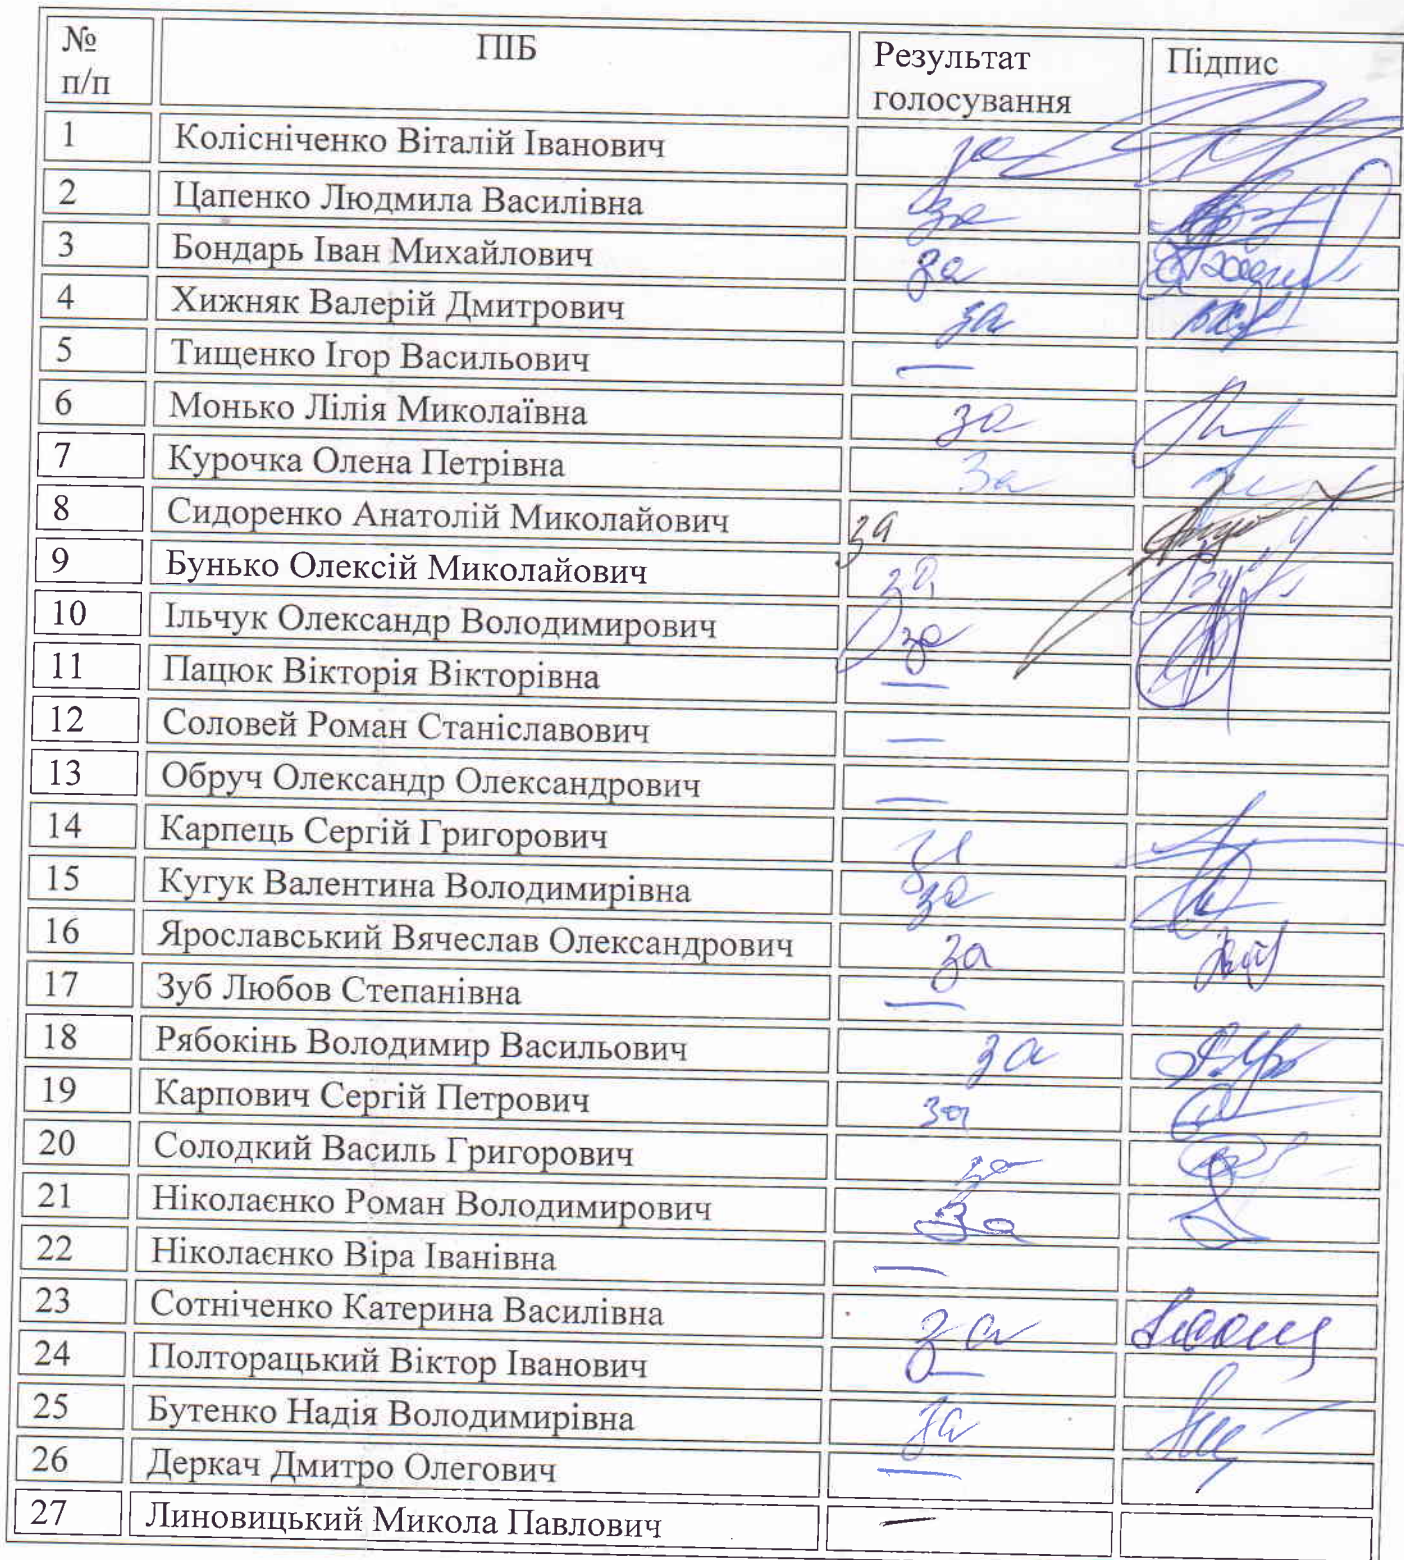 № п/п ПІБ Результат голосування Підпис
1 Колісніченко Віталій Іванович за
2 Цапенко Людмила Василівна за
3 Бондарь Іван Михайлович за
4 Хижняк Валерій Дмитрович за
5 Тищенко Ігор Васильович —
6 Монько Лілія Миколаївна за
7 Курочка Олена Петрівна За
8 Сидоренко Анатолій Миколайович за
9 Бунько Олексій Миколайович за
10 Ільчук Олександр Володимирович за
11 Пацюк Вікторія Вікторівна —
12 Соловей Роман Станіславович —
13 Обруч Олександр Олександрович —
14 Карпець Сергій Григорович за
15 Кугук Валентина Володимирівна за
16 Ярославський Вячеслав Олександрович за
17 Зуб Любов Степанівна —
18 Рябокінь Володимир Васильович за
19 Карпович Сергій Петрович за
20 Солодкий Василь Григорович за
21 Ніколаєнко Роман Володимирович За
22 Ніколаєнко Віра Іванівна —
23 Сотніченко Катерина Василівна за
24 Полторацький Віктор Іванович —
25 Бутенко Надія Володимирівна за
26 Деркач Дмитро Олегович —
27 Линовицький Микола Павлович —